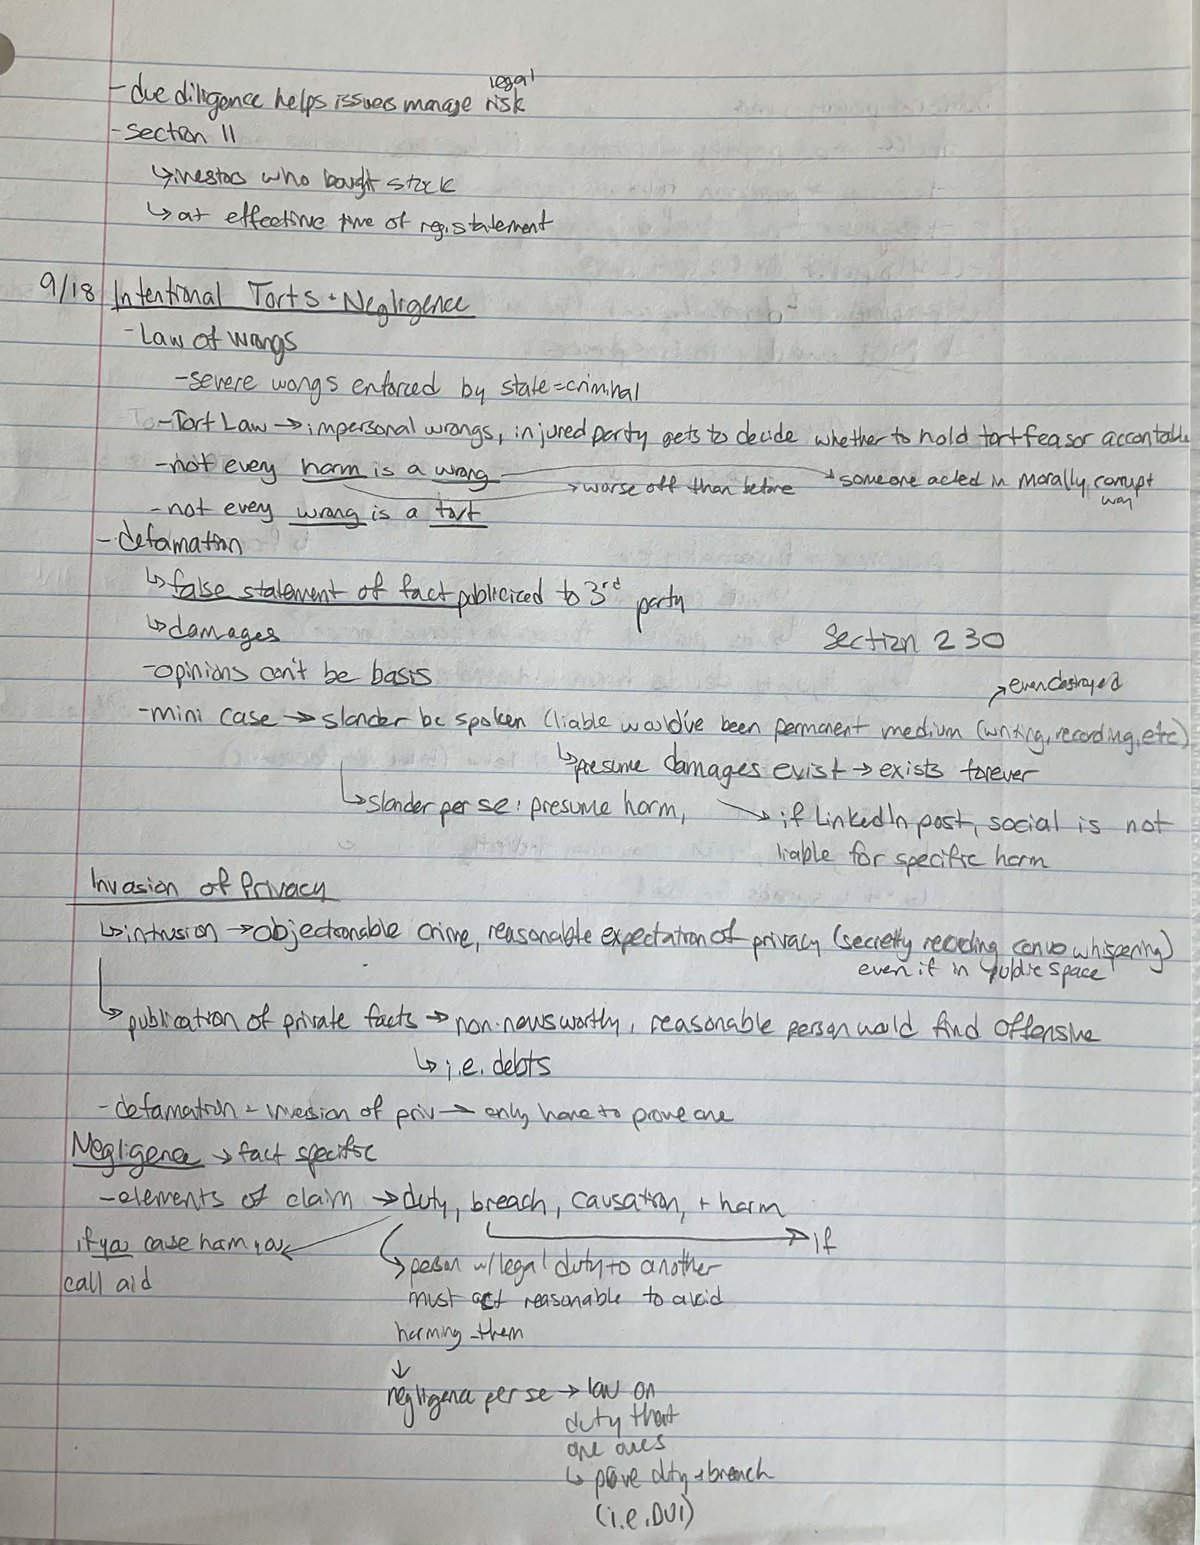 -due diligence helps issuers manage legal risk
-Section 11
↳investors who bought stock
↳at effective time of reg. statement
9/18 Intentional Torts + Negligence
-Law of wrongs
-severe wrongs enforced by state=criminal
-Tort Law → impersonal wrongs, injured party gets to decide whether to hold tortfeasor accountable
-not every harm is a wrong → worse off than before → someone acted in morally corrupt way
-not every wrong is a tort
-defamation
↳false statement of fact publicized to 3rd party
↳damages
Section 230
-opinions can't be basis
→even destroyed
-mini case → slander bc spoken (liable would've been permanent medium (writing, recording, etc)
↳presume damages exist → exists forever
↳slander per se: presume harm,
→ if LinkedIn post, social is not
liable for specific harm
Invasion of Privacy
↳intrusion → objectionable crime, reasonable expectation of privacy (secretly recording convo whispering)
even if in public space
↳publication of private facts → non-newsworthy, reasonable person would find offensive
↳i.e. debts
-defamation + invasion of priv → only have to prove one
Negligence → fact specific
-elements of claim → duty, breach, causation, + harm
→if
if you cause harm, you
call aid
↳person w/legal duty to another
must act reasonable to avoid
harming them
↓
negligence per se → law on
duty that
one owes
↳ prove duty + breach
(i.e. DUI)